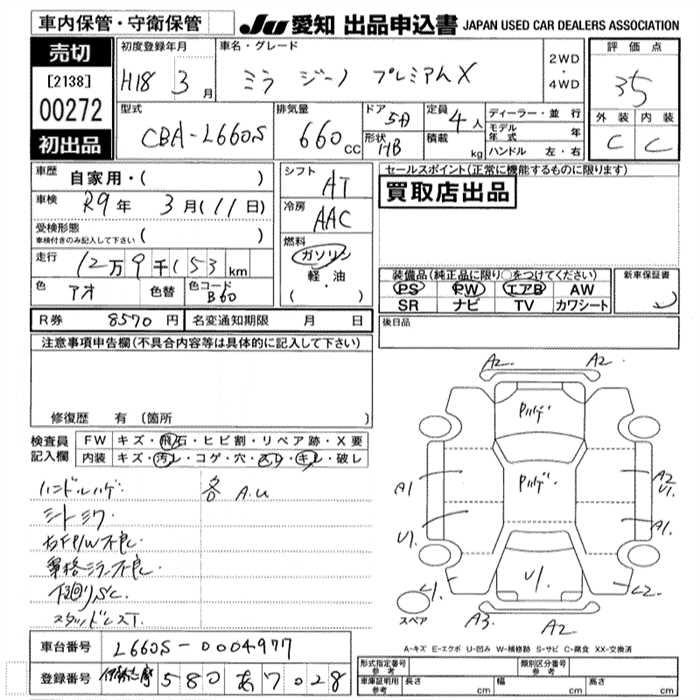 車内保管・守衛保管
JU 愛知 出品申込書 JAPAN USED CAR DEALERS ASSOCIATION
売切
[2138]
00272
初出品
初度登録年月
H18 3月
車名・グレード
ミラ ジーノ プレミアムX
2WD
・
4WD
評価点
35
外装 内装
C C
型式
CBA-L660S
排気量
660cc
ドア
5D
形状
HB
定員
4人
積載
kg
ディーラー・並行
モデル年式 年
ハンドル 左・右
車歴
自家用・( )
車検
R9年 3月(11日)
受検形態
車検付きのみ記入して下さい ( )
走行
12万9千153km
色
アオ
色替
色コード
B60
シフト
AT
冷房
AAC
燃料
ガソリン
軽・油
( ・ )
セールスポイント(正常に機能するものに限ります)
買取店出品
装備品(純正品に限り○をつけてください)
PS PW エアB AW
SR ナビ TV カワシート
新車保証書
後日品
R券 8570円 名変通知期限 月 日
注意事項申告欄(不具合内容等は具体的に記入して下さい)
修復歴 有(箇所 )
検査員
記入欄
FW キズ・飛石・ヒビ割・リペア跡・X要
内装 キズ・汚レ・コゲ・穴・キレ・破レ
ハンドルハゲ. 各A.U
シートシワ
右FP/W不良.
下廻りSC.
スタッドレスT.
A2 A2
Pハゲ
Pハゲ
A1 A2
U1.
U1 A1.
U1
L1 L2
スペア
A3 A2
A-キズ E-エクボ U-凹み W-補修跡 S-サビ C-腐食 XX-交換済
車台番号 L660S-0004977
登録番号 伊勢志摩 580 あ 7028
形式指定番号
参考
類別区分番号
参考
車庫証明用
参考
長さ cm 幅 cm 高さ cm